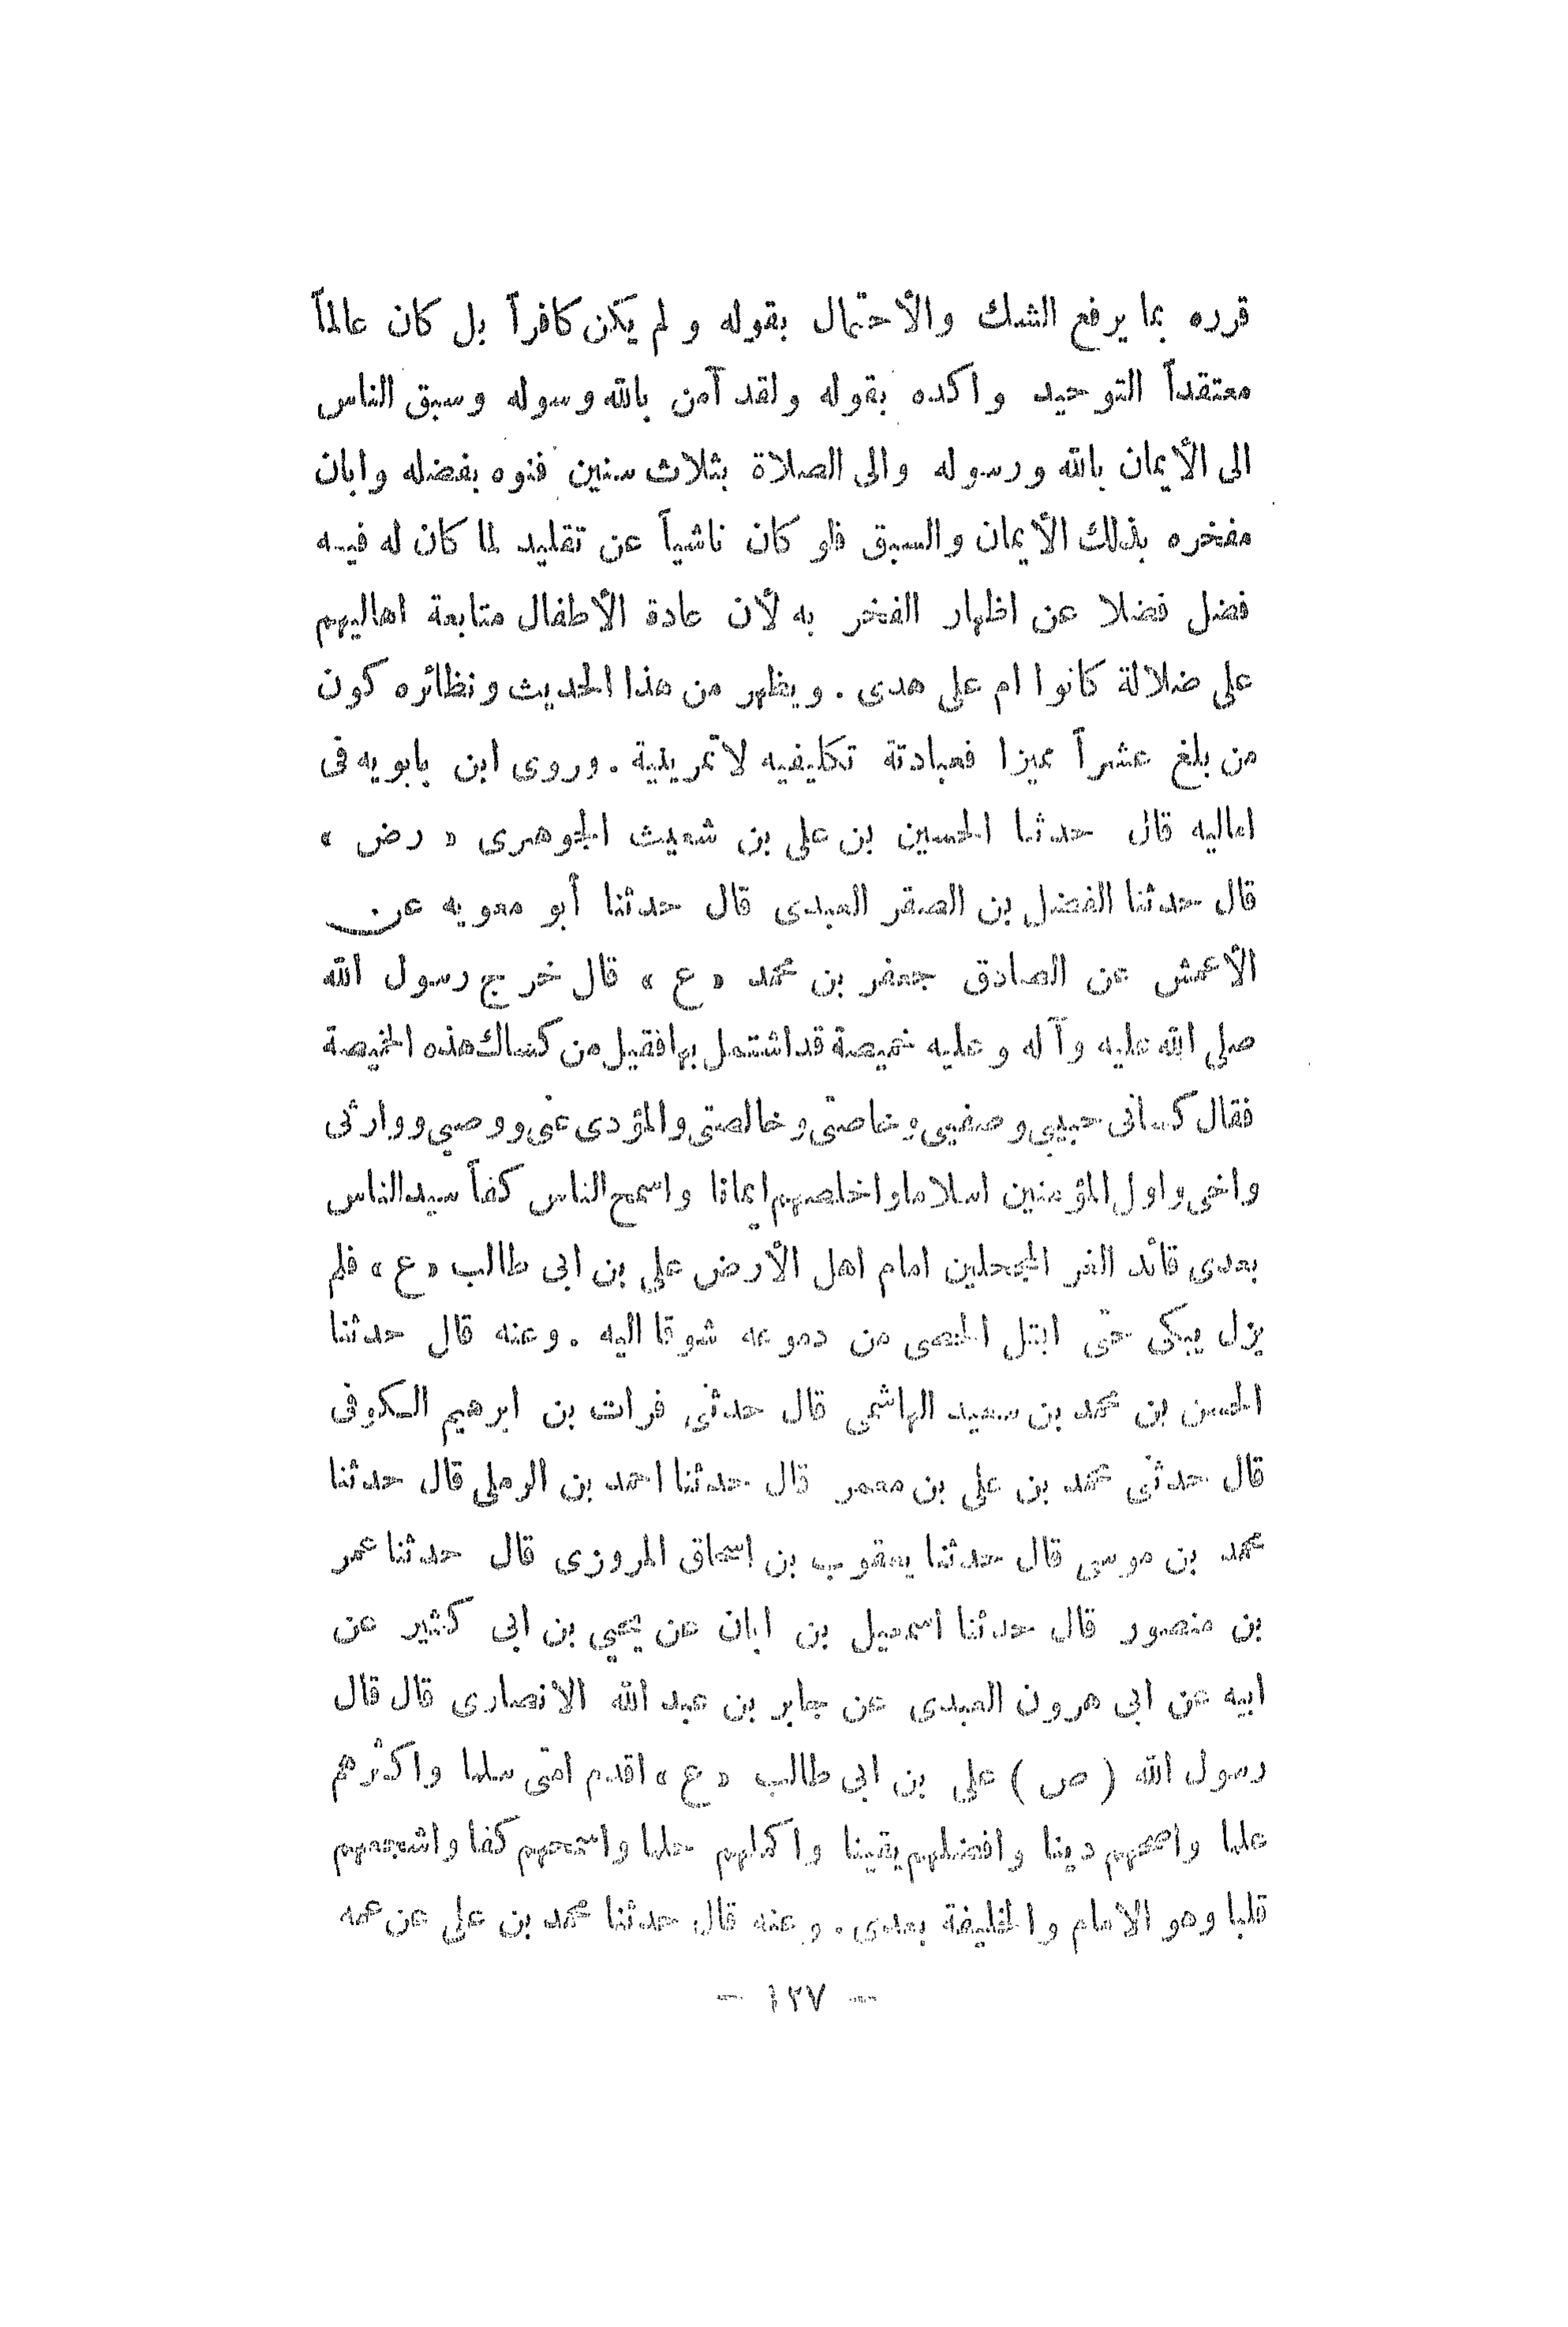 قرره بما يرفع الشك والأحتمال بقوله و لم يكن كافراً بل كان عالماً
معتقداً التوحيد واكده بقوله ولقد آمن بالله وسوله وسبق الناس
الى الأيمان بالله ورسوله والى الصلاة بثلاث سنين فنوه بفضله وابان
مفخره بذلك الأيمان والسبق فلو كان ناشياً عن تقليد لما كان له فيه
فضل فضلا عن اظهار الفخر به لأن عادة الأطفال متابعة اهاليهم
على ضلالة كانوا ام على هدى . ويظهر من هذا الحديث ونظائره كون
من بلغ عشراً مميزا فعبادتة تكليفيه لا تمرينية . وروى ابن بابويه فى
اماليه قال حدثنا الحسين بن على بن شعيث الجوهرى « رض »
قال حدثنا الفضل بن الصقر العبدى قال حدثنا أبو معويه عن
الأعمش عن الصادق جعفر بن محمد « ع » قال خرج رسول الله
صلى الله عليه وآله وعليه خميصة قد اشتمل بها فقيل من كساك هذه الخميصة
فقال كسانى حبيبى وصفيى وخاصتى وخالصتى والمؤدى عنى ووصيى ووارثى
واخى واول المؤمنين اسلاما واخلصهم ايمانا واسمح الناس كفاً سيد الناس
بعدى قائد الغر المحجلين امام اهل الأرض على بن ابى طالب « ع » فلم
يزل يبكى حتى ابتل الحصى من دموعه شوقا اليه . وعنه قال حدثنا
الحسن بن محمد بن سعيد الهاشمى قال حدثنى فرات بن ابرهيم الكوفى
قال حدثنى محمد بن على بن معمر قال حدثنا احمد بن الرملى قال حدثنا
محمد بن موسى قال حدثنا يعقوب بن اسحاق المروزى قال حدثنا عمر
بن منصور قال حدثنا اسمعيل بن ابان عن يحيي بن ابى كثير عن
ابيه عن ابى هرون العبدى عن جابر بن عبد الله الانصارى قال قال
رسول الله ( ص ) على بن ابى طالب « ع » اقدم امتى سلما واكثرهم
علما واصحهم دينا وافضلهم يقينا واكملهم حلما واسمحهم كفا واشجعهم
قلبا وهو الامام والخليفة بعدى . وعنه قال حدثنا محمد بن على عن عمه
— ١٢٧ —